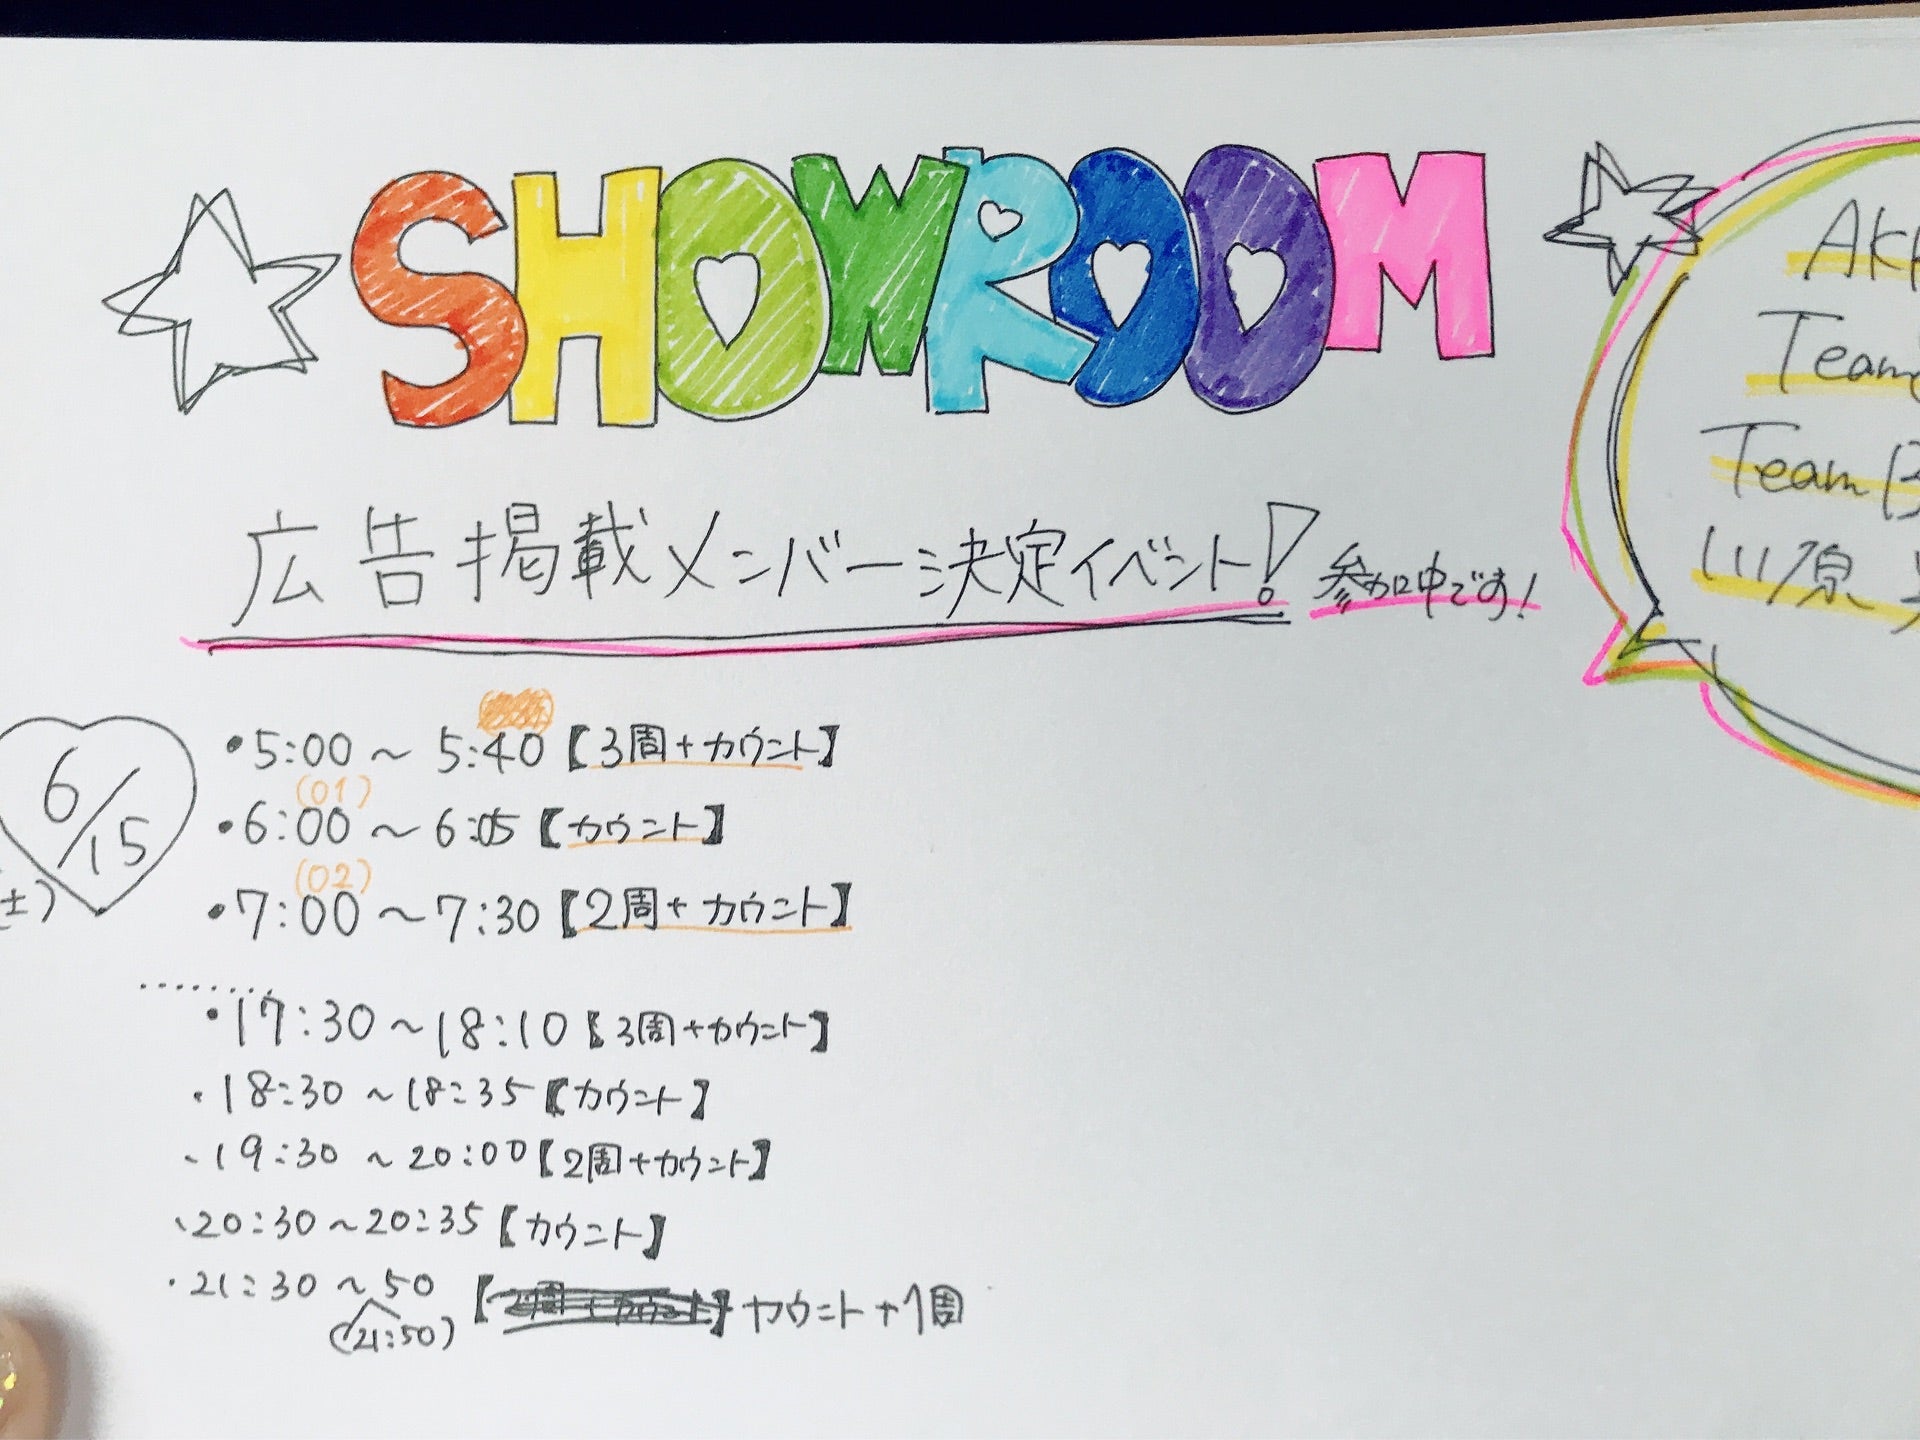 SHOWROOM
広告掲載メンバー決定イベント! 参加中です!
AK
Team
Team B
川原
6/15
土)
・5:00 〜 5:40【3周+カウント】
(01)
・6:00 〜 6:05【カウント】
(02)
・7:00 〜 7:30【2周+カウント】
・17:30 〜 18:10【3周+カウント】
・18:30 〜 18:35【カウント】
・19:30 〜 20:00【2周+カウント】
・20:30 〜 20:35【カウント】
・21:30 〜 50 【2周+カウント】カウント+1周
(21:50)